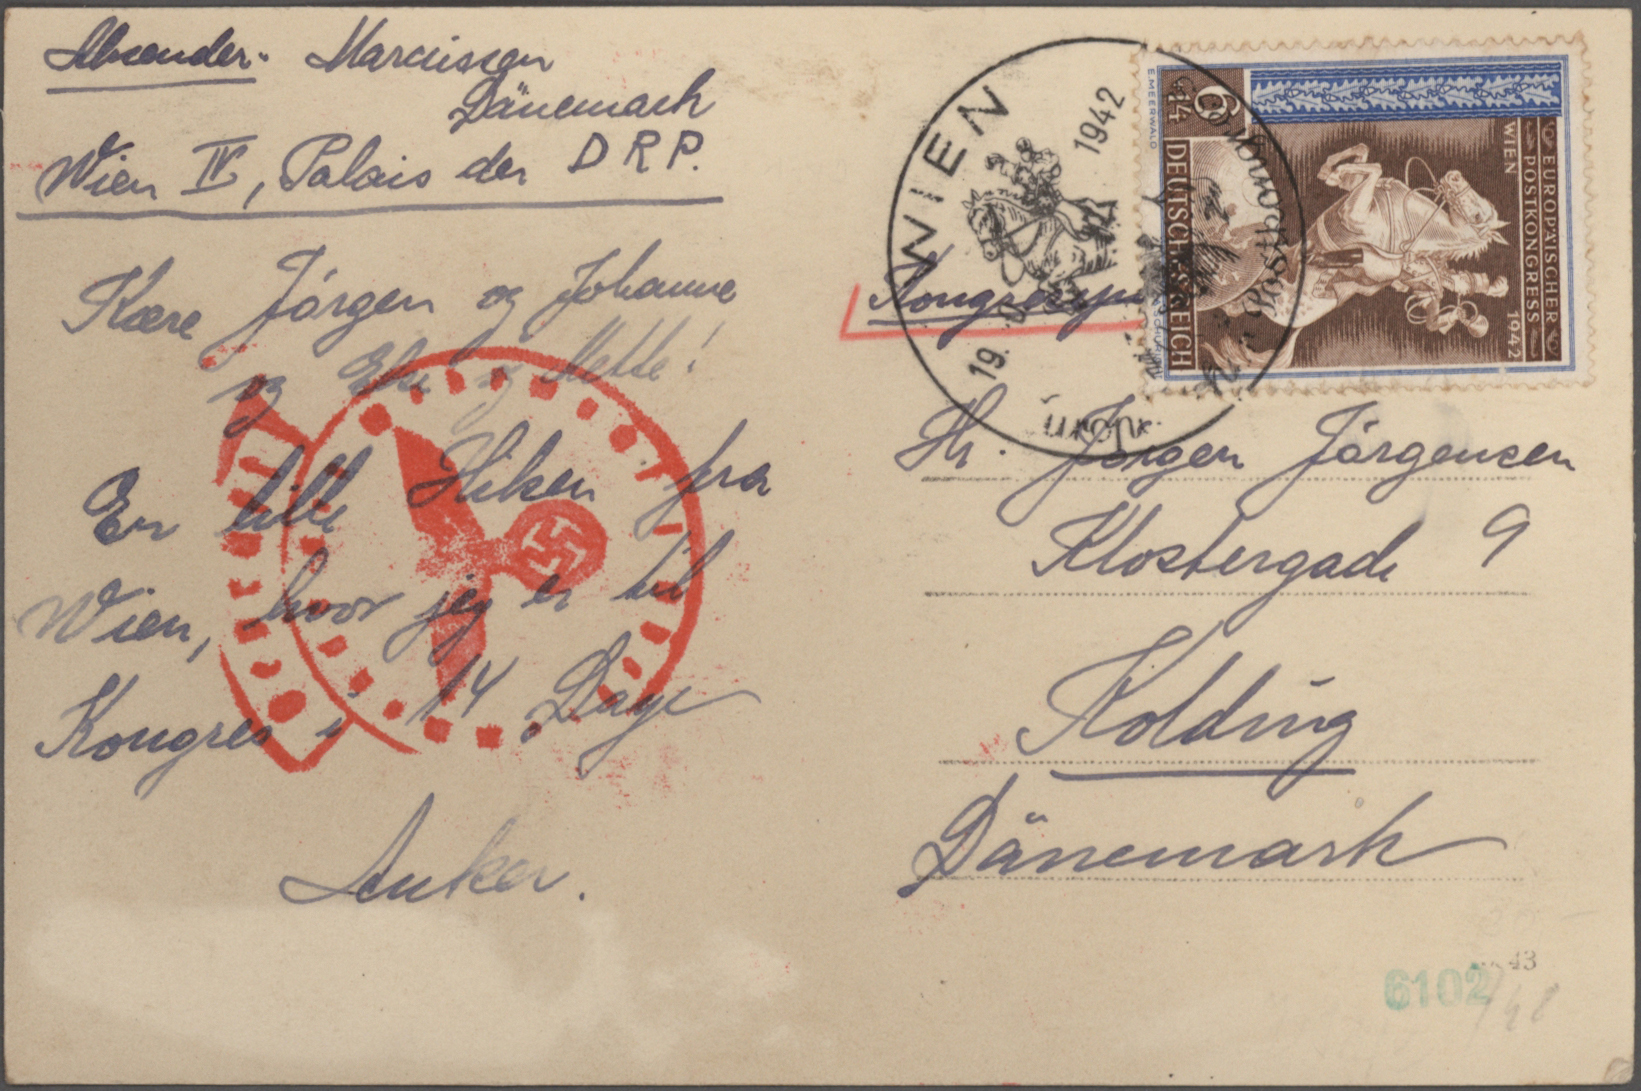 Absender: Marcussen
Dänemark
Wien IV, Palais der D R P.
Kære Jörgen og Johanne
og Else og Mette!
En lille Hilsen fra
Wien, hvor jeg er til
Kongres i 14 Dage
Anker.
WIEN
19.
1942
6+14
DEUTSCHES REICH
EUROPÄISCHER
POSTKONGRESS
WIEN
1942
E.MEERWALD
Hr. Jörgen Jörgensen
Klostergade 9
Kolding
Dänemark
43
6102